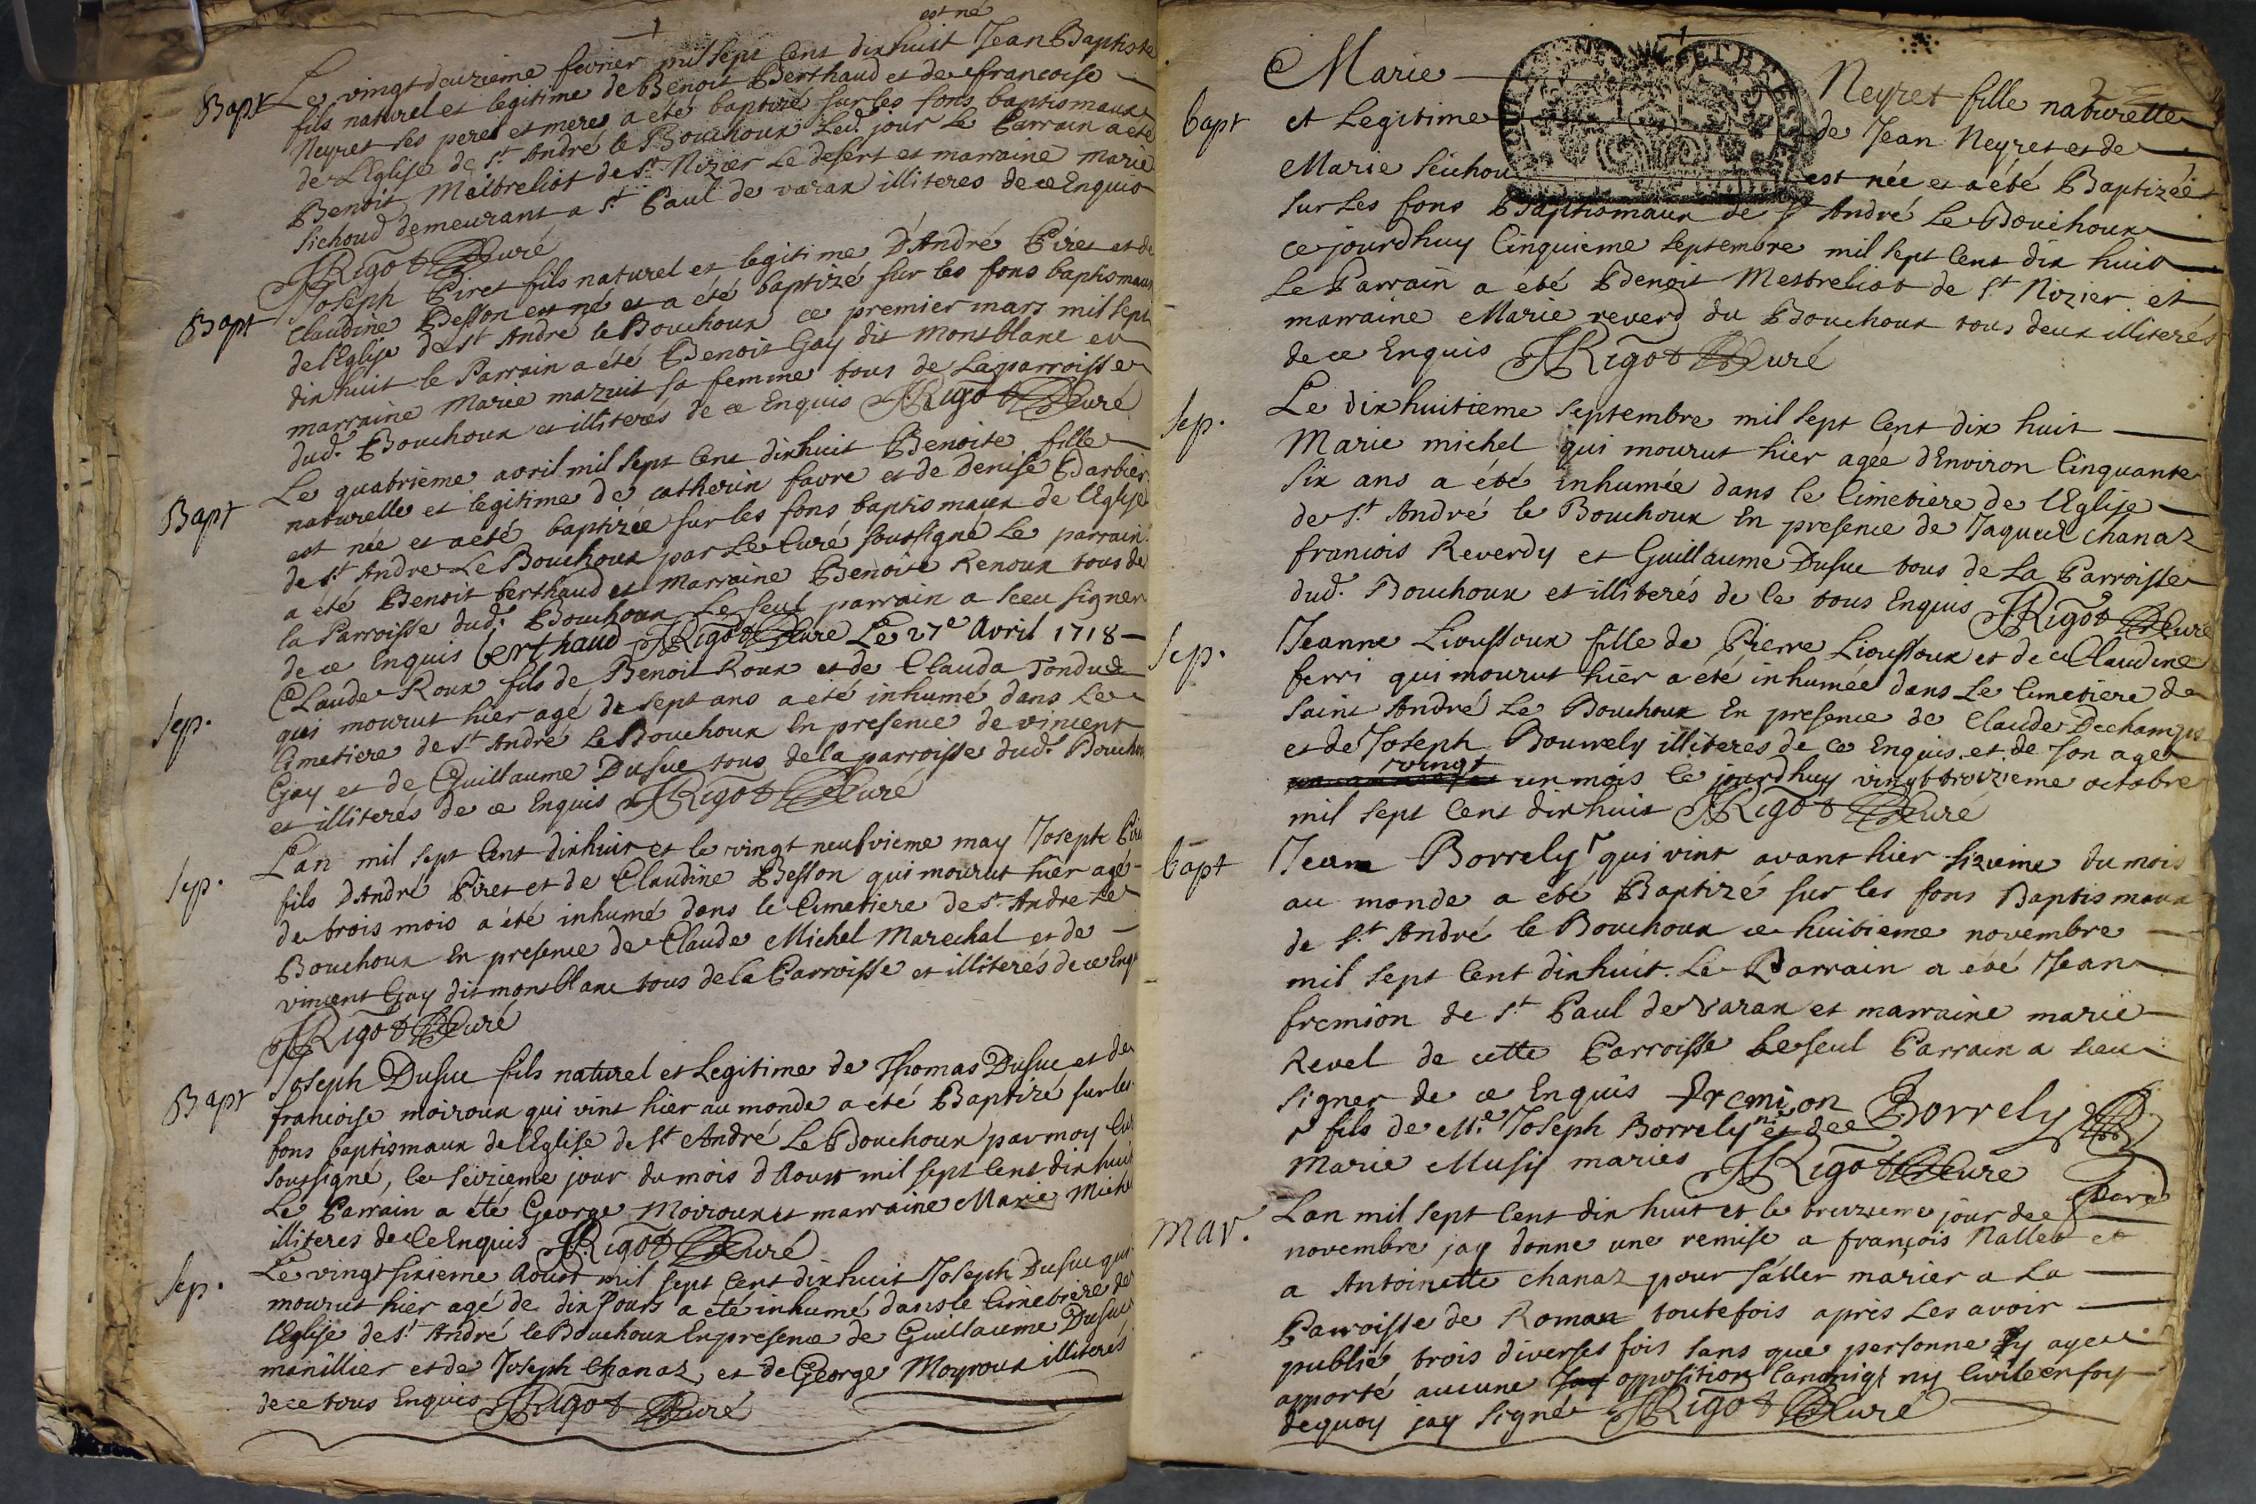 est né
Bapt Le vingt deuzieme fevrier mil sept Cent dixhuit Jean Baptiste
fils naturel et legitime de Benoit Berthaud et de francoise
Neyret ses peres et meres a été baptizé sur les fons baptismaux
de L'Eglise de St André le Bouchoux led. jour Le Parrain a été
Benoit Mêstreliot de St Nizier Le desert et marraine marie
Sichoud demeurant a St Paul de varax illiteres de ce Enquis
JRigot Curé
Bapt Joseph Piret fils naturel et legitime D'André Piret et de
Claudine Besson est né et a été baptizé sur les fons baptismaux
de l'Eglise de St André le Bouchoux ce premier mars mil sept
dixhuit le Parrain a été Benoit Gay dit Montblanc et
marraine Marie mazuit sa femme tous de La parroisse
dud. Bouchoux et illiterés de ce Enquis JRigot Curé
Bapt Le quatrieme avril mil sept Cent dixhuit Benoite fille
naturelle et legitime de catherin favre et de Denise Barbier
est née et a été baptizée sur les fons baptismaux de l'Eglise
de St André Le Bouchoux par Le Curé soussigné Le parrain
a été Benoit berthaud et Marraine Benoite Renoux tous de
la Parroisse dud. Bouchoux Le seul parrain a sceu signer
de ce Enquis berthaud JRigot Curé Le 27e Avril 1718
Sep. Claude Roux fils de Benoit Roux et de Clauda Tondu
qui mourut hier agé de sept ans a été inhumé dans Le
Cimetiere de St André Le Bouchoux En presence de vincent
Gay et de Guillaume Dusuc tous de la parroisse dud. Bouchoux
et illiterés de ce Enquis JRigot Curé
Sep. L'an mil sept Cent dixhuit et le vingt neufvieme may Joseph Piret
fils D'André Piret et de Claudine Besson qui mourut hier agé
de trois mois a été inhumé dans le Cimetiere de St André Le
Bouchoux En presence de Claude Michel Marechal et de
vincent Gay dit montblanc tous de la Parroisse et illiterés de ce Enq
JRigot Curé
Bapt Joseph Dusuc fils naturel et Legitime de Thomas Dusuc et de
francoise moiroux qui vint hier au monde a été Baptizé sur les
fons baptismaux de l'Eglise de St André Le Bouchoux par moy Curé
soussigné, le seizieme jour du mois d'Aoust mil sept Cent dixhuit
Le Parrain a été George Moiroux et marraine Marie Michel
illiteres de Ce Enquis JRigot Curé
Sep. Le vingt sixieme Aoust mil sept Cent dixhuit Joseph Dusuc qui
mourut hier agé de dix jours a été inhumé dans le Cimetiere de
l'Eglise de St André le Bouchoux En presence de Guillaume Dusuc
manillier et de Joseph Chanaz, et de George Moyroux illiterés
de ce tous Enquis JRigot Curé
Marie Neyret fille naturelle
Bapt et Legitime de Jean Neyret et de
Marie Seichou est née et a été Baptizée
sur Les fons Baptismaux de St André Le Bouchoux
ce jourdhuy Cinquieme septembre mil sept Cent dix huit
Le Parrain a été Benoit Mestreliot de St Nizier et
marraine Marie reverd du Bouchoux tous deux illiterés
de ce Enquis JRigot Curé
Sep. Le dixhuitieme septembre mil sept Cent dix huit
Marie michel qui mourut hier agée d'Environ Cinquante
six ans a été inhumée dans le Cimetiere de l'Eglise
de St André le Bouchoux En presence de Jaques Chanaz
francois Reverdy et Guillaume Dusuc tous de La Parroisse
dud. Bouchoux et illiterés de Ce tous Enquis JRigot Curé
Sep. Jeanne Lioussoux fille de Pierre Lioussoux et de Claudine
ferri qui mourut hier a été inhumée dans Le Cimetiere de
Saint André Le Bouchoux En presence de Claude Dechamps
et de Joseph Bourrely illiteres de ce Enquis et de son age
vingt un mois le jourdhuy vingt troizieme octobre
mil sept Cent dixhuit JRigot Curé
bapt Jean Borrely qui vint avant hier sizieme du mois
au monde a été Baptizé sur les fons Baptismaux
de St André le Bouchoux ce huitieme novembre
mil sept Cent dixhuit. Le Parrain a été Jean
fremion de St Paul de Varax et marraine marie
Revel de cette Parroisse Le seul Parrain a sceu
signer de ce Enquis fremion Borrely
fils de Mr. Joseph Borrely et de
Marie Musy mariés JRigot Curé
mar. L'an mil sept Cent dix huit et le treizieme jour de
novembre jay donne une remise a françois Nallet et
a Antoinette Chanaz pour saller marier a La
Parroisse de Roman toutefois après Les avoir
publié trois diverses fois sans que personne y aye
apporté aucune opposition Canoniqe ny Civile en foy
dequoy jay signé JRigot Curé